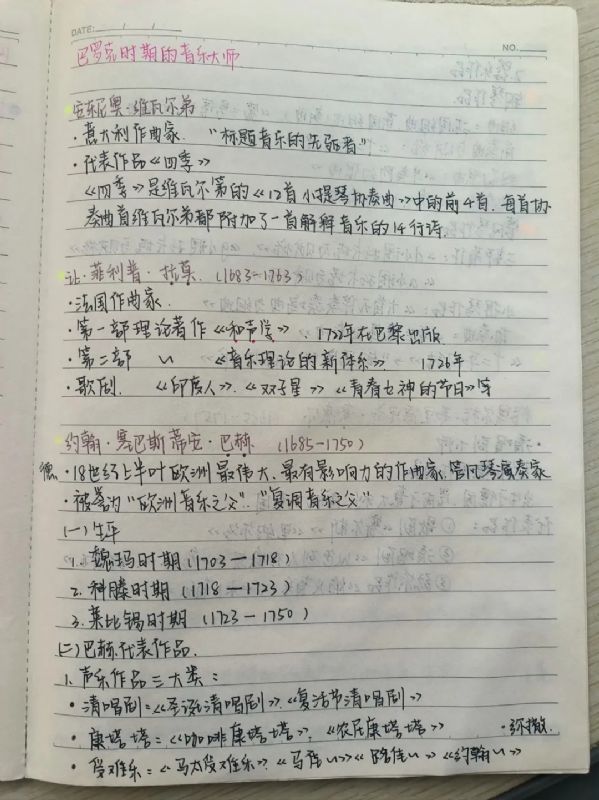 DATE: / /
NO.
巴罗克时期的音乐大师
安东尼奥·维瓦尔弟
·意大利作曲家. "标题音乐的先驱者"
·代表作品《四季》
《四季》是维瓦尔第的《12首小提琴协奏曲》中的前4首. 每首协
奏曲首维瓦尔弟都附加了一首解释音乐的14行诗.
让·菲利普·拉莫. (1683-1763)
·法国作曲家.
·第一部理论著作《和声学》. 1722年在巴黎出版
·第二部 〃 《音乐理论的新体系》 1726年
·歌剧. 《印度人》.《双子星》《青春女神的节日》等
约翰·塞巴斯蒂安·巴赫. (1685-1750)
德 ·18世纪上半叶欧洲最伟大、最有影响力的作曲家.管风琴演奏家
·被誉为"欧洲音乐之父"."复调音乐之父"
(一)生平
1.魏玛时期(1703-1718)
2.科滕时期(1718-1723)
3.莱比锡时期(1723-1750)
(二)巴赫代表作品.
1.声乐作品三大类:
·清唱剧:《圣诞清唱剧》.《复活节清唱剧》
·康塔塔:《咖啡康塔塔》.《农民康塔塔》 ·弥撒.
·受难乐:《马太受难乐》.《马可〃》《路佳〃》《约翰〃》